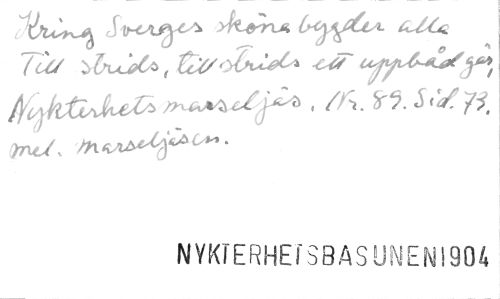 Kring Sverges sköna bygder alla
Till strids, till strids ett uppbåd går,
Nykterhetsmarseljäs. Nr. 89. Sid. 73.
mel. marseljäsen.
NYKTERHETSBASUNEN1904